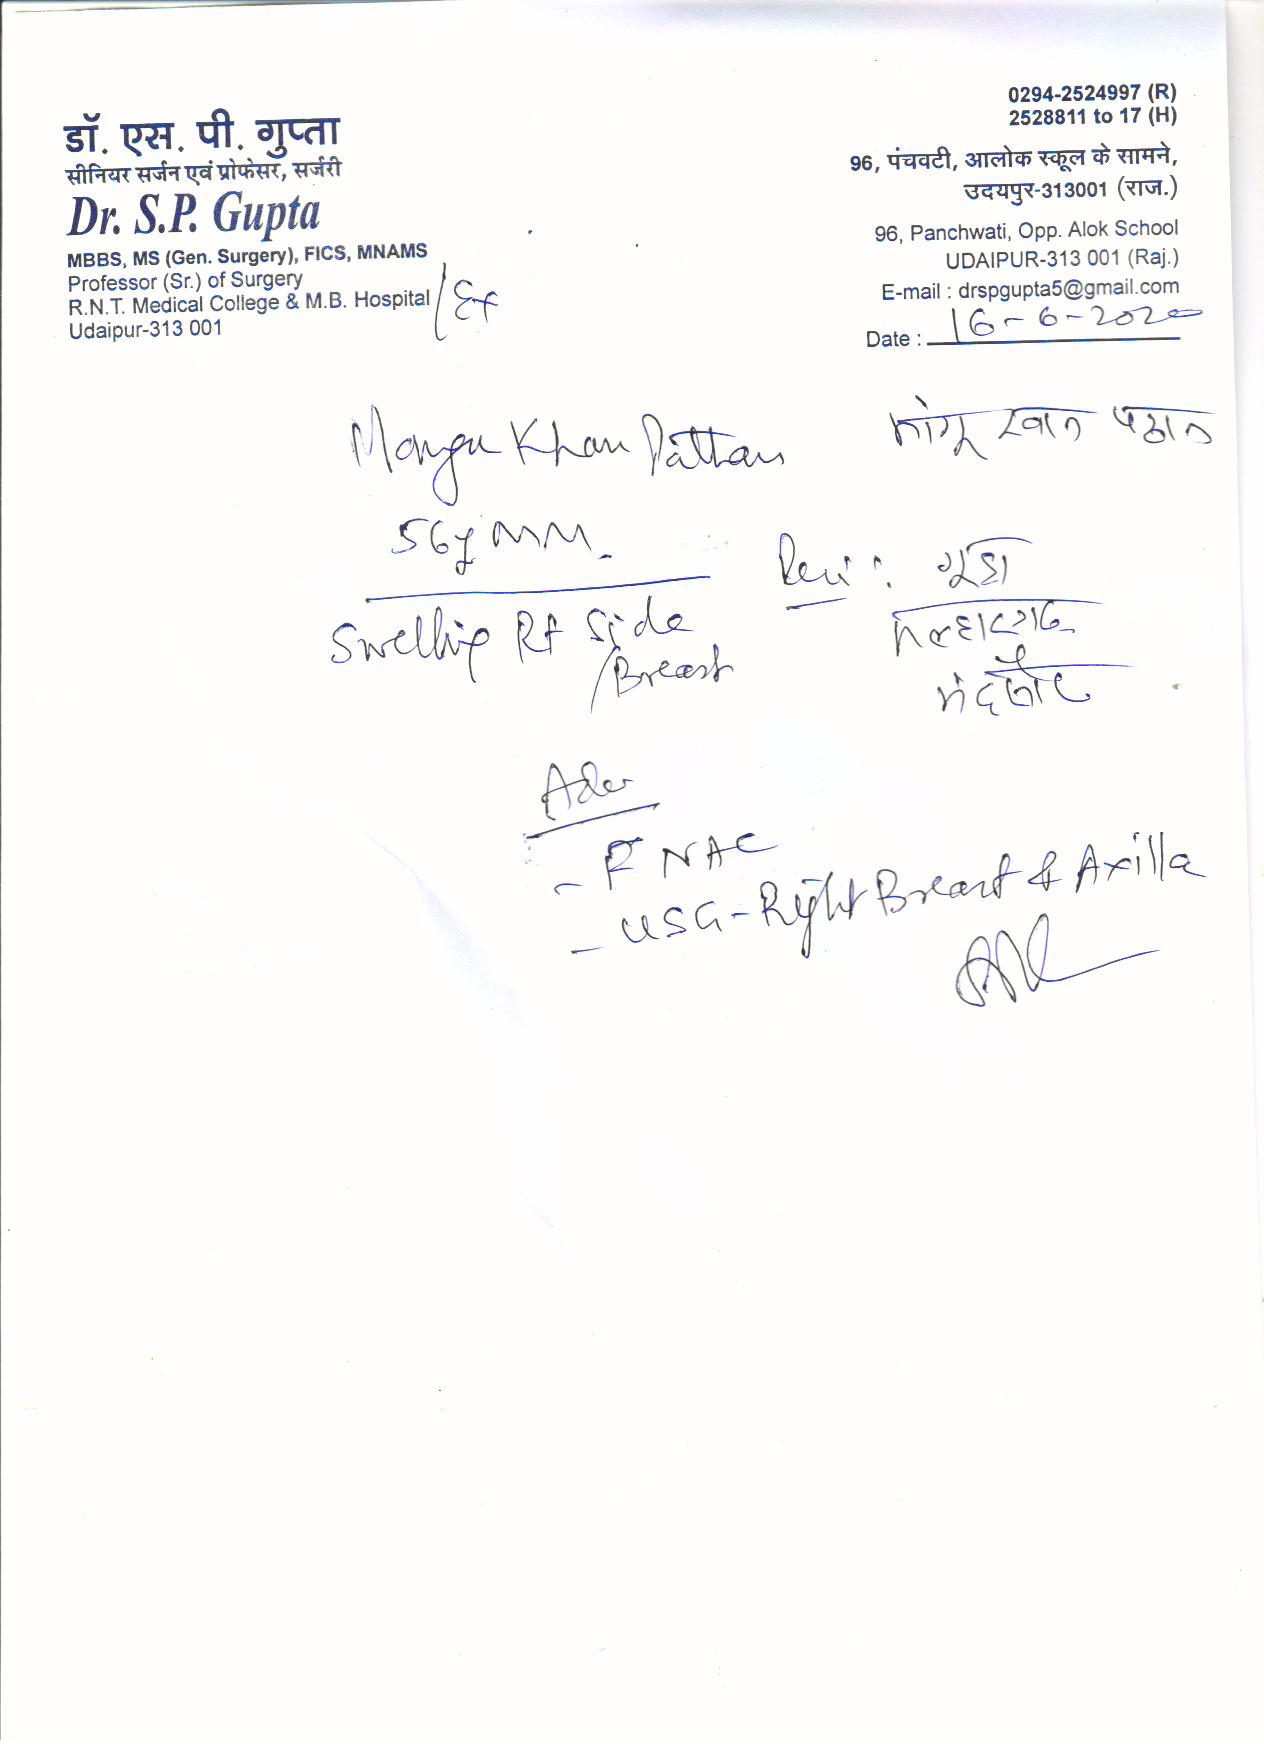 डॉ. एस. पी. गुप्ता
सीनियर सर्जन एवं प्रोफेसर, सर्जरी
Dr. S.P. Gupta
MBBS, MS (Gen. Surgery), FICS, MNAMS
Professor (Sr.) of Surgery
R.N.T. Medical College & M.B. Hospital /Ex
Udaipur-313 001
0294-2524997 (R)
2528811 to 17 (H)
96, पंचवटी, आलोक स्कूल के सामने,
उदयपुर-313001 (राज.)
96, Panchwati, Opp. Alok School
UDAIPUR-313 001 (Raj.)
E-mail : drspgupta5@gmail.com
Date : 16-6-2020
Mangu Khan Pattan मांगू खान पठान
56y MM.
Swelling Rt Side
/Breast
गूडा
मल्हारगढ
मंदसौर
Adv
- FNAC
- USG - Right Breast & Axilla